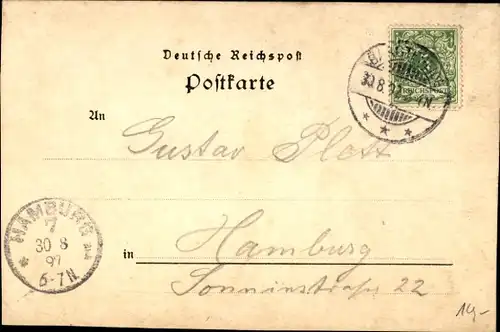 Deutsche Reichspost
Postkarte
An
Gustav Platt
in Hamburg
Sonninstraße 22
5
REICHSPOST
30.8.97
N.
* * *
HAMBURG
7
30 8
97
6-7N.
14,-